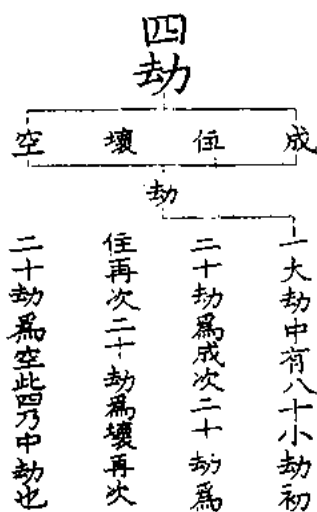 四劫
成住壞空
劫
一大劫中有八十小劫初
二十劫爲成次二十劫爲
住再次二十劫爲壞再次
二十劫爲空此四乃中劫也